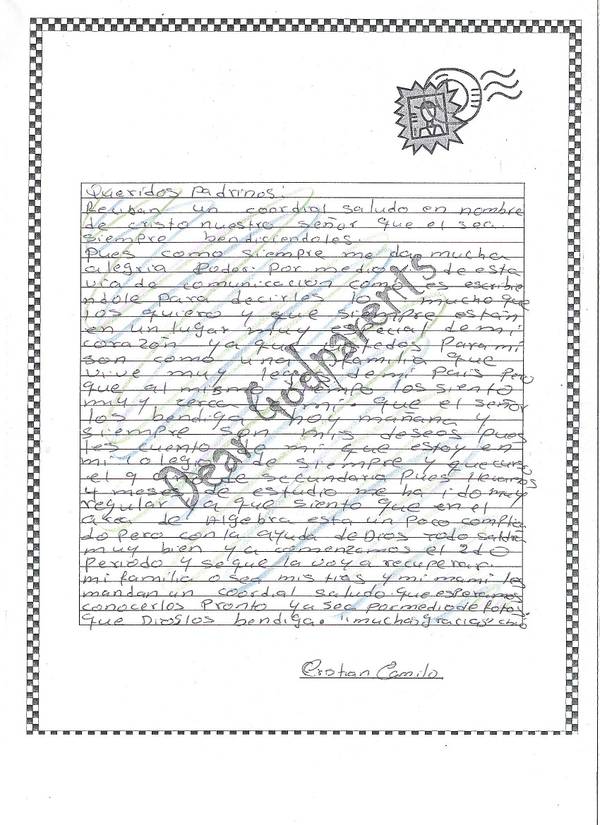 Queridos Padrinos:
Reciban un coordial saludo en nombre
de cristo nuestro señor que el sea
siempre bendiciendoles.
Pues como siempre me da mucha
alegria Poder Por medio de esta
via de comunicación como es escribi
endole Para decirles lo mucho que
los quiero y que siempre están
en un lugar muy especial de mi
corazón ya que ustedes Para mi
son como una familia que
vive muy lejos de mi Pais Pero
que al mismo tiempo los siento
muy cerca de mi. que el señor
los bendiga hoy mañana y
siempre son mis deseos pues
les cuento de mi que estoy en
mi colegio de siempre y que curso
el 9 de secundaria Pues llevamos
4 meses de estudio me ha ido muy
regular ya que siento que en el
área de Algebra esta un Poco complica
do Pero con la ayuda de Dios Todo saldra
muy bien y a comenzamos el 2do
Periodo y se que la voy a recuperar.
mi familia o sea mis tias y mi mami les
mandan un coordial saludo que esperamos
conocerlos Pronto ya sea por medio de fotos.
que Dios los bendiga. "muchas gracias" chao
Dear Godparents
Cristian Camilo